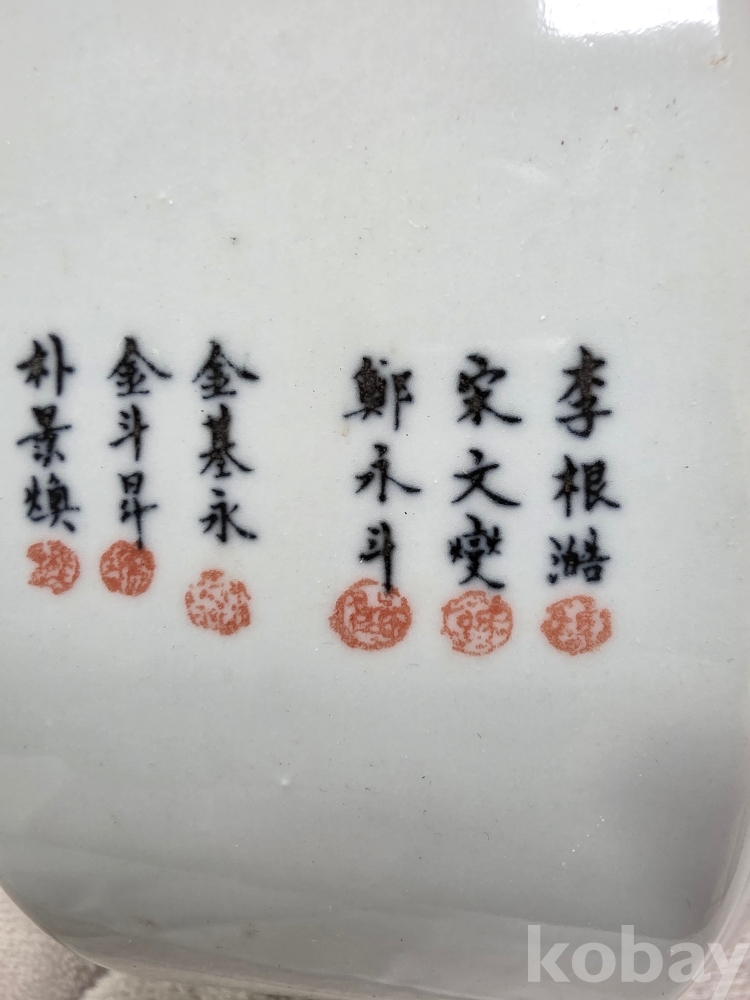 李根澔
宋文燮
鄭永斗
金基永
金斗昇
朴景煥
kobay